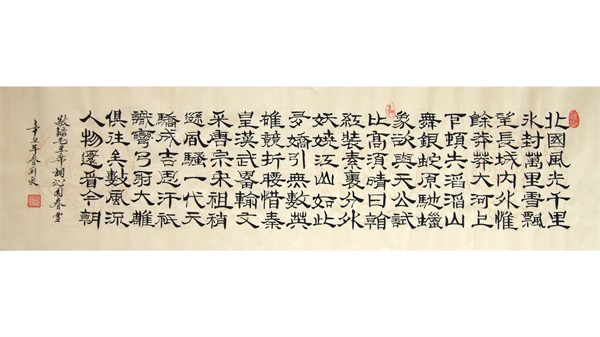 北國風光千里
冰封萬里雪飄
望長城内外惟
餘莽莽大河上
下頓失滔滔山
舞銀蛇原馳蠟
象欲與天公試
比高須晴日看
紅裝素裹分外
妖嬈江山如此
多嬌引無數英
雄競折腰惜秦
皇漢武畧輸文
采唐宗宋祖稍
遜風騷一代天
驕成吉思汗祇
識彎弓射大雕
俱往矣數風流
人物還看今朝
敬錄毛主席詞沁園春雪
年春